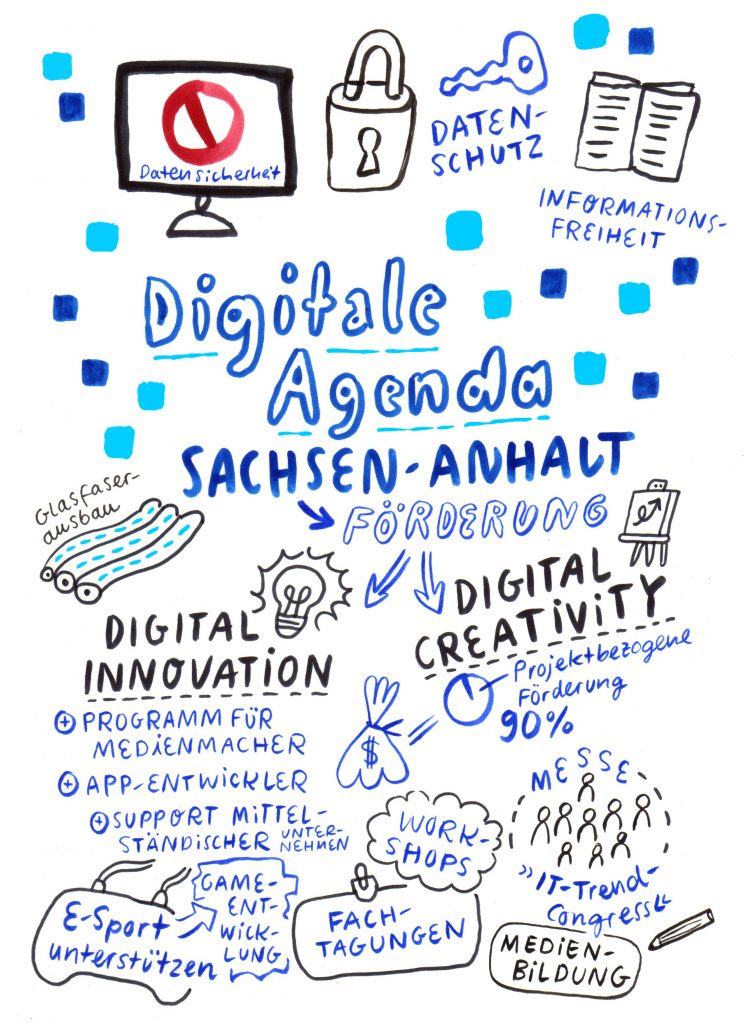 Datensicherheit
DATEN-
SCHUTZ
INFORMATIONS-
FREIHEIT
Digitale
Agenda
SACHSEN-ANHALT
FÖRDERUNG
Glasfaser-
ausbau
DIGITAL
INNOVATION
DIGITAL
CREATIVITY
Projektbezogene
Förderung
90%
$
PROGRAMM FÜR
MEDIENMACHER
APP-ENTWICKLER
SUPPORT MITTEL-
STÄNDISCHER UNTER-
NEHMEN
MESSE
»IT-Trend-
Congress«
WORK-
SHOPS
E-Sport
unterstützen
GAME-
ENT-
WICK-
LUNG
FACH-
TAGUNGEN
MEDIEN-
BILDUNG